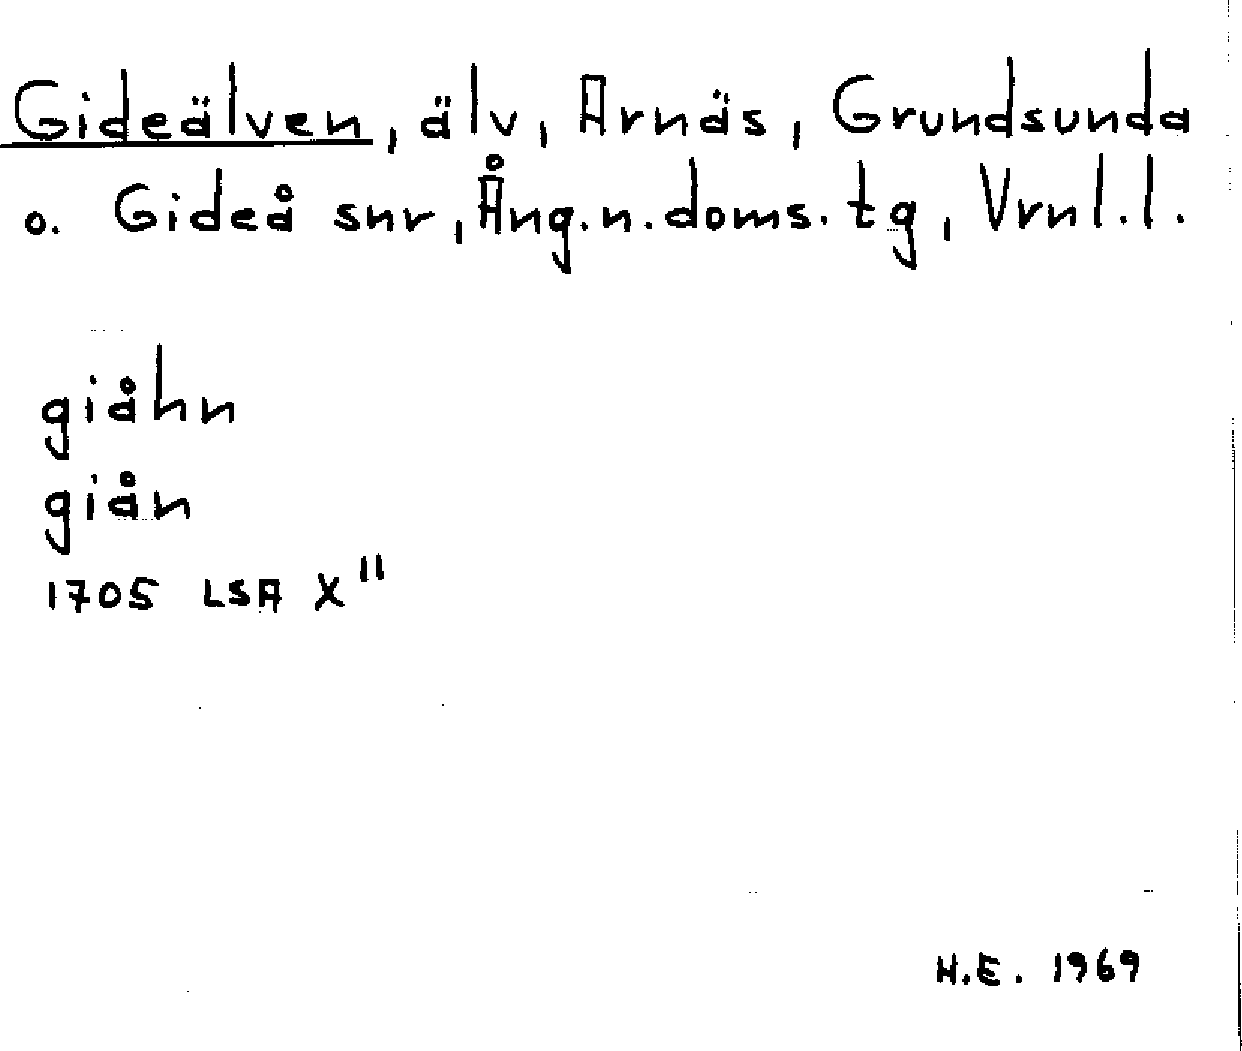 Gideälven, älv, Arnäs, Grundsunda
o. Gideå snr, Ång.n.doms.tg, Vrnl.l.
giåhn
giån
1705 LSA X"
H.E. 1969